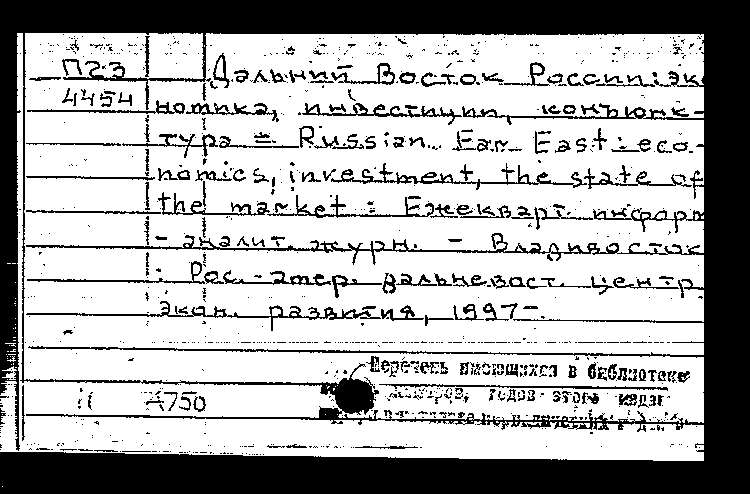 П23 Дальний Восток России: эко
4454 номика, инвестиции, конъюнк-
тура = Russian Far East: eco-
nomics, investment, the state of
the market : Ежекварт. информ
- аналит. журн. - Владивосток
: Рос.-амер. дальневост. центр
экон. развития, 1997-.
Перечень имеющихся в библиотеке
номеров, годов этого издания
А750